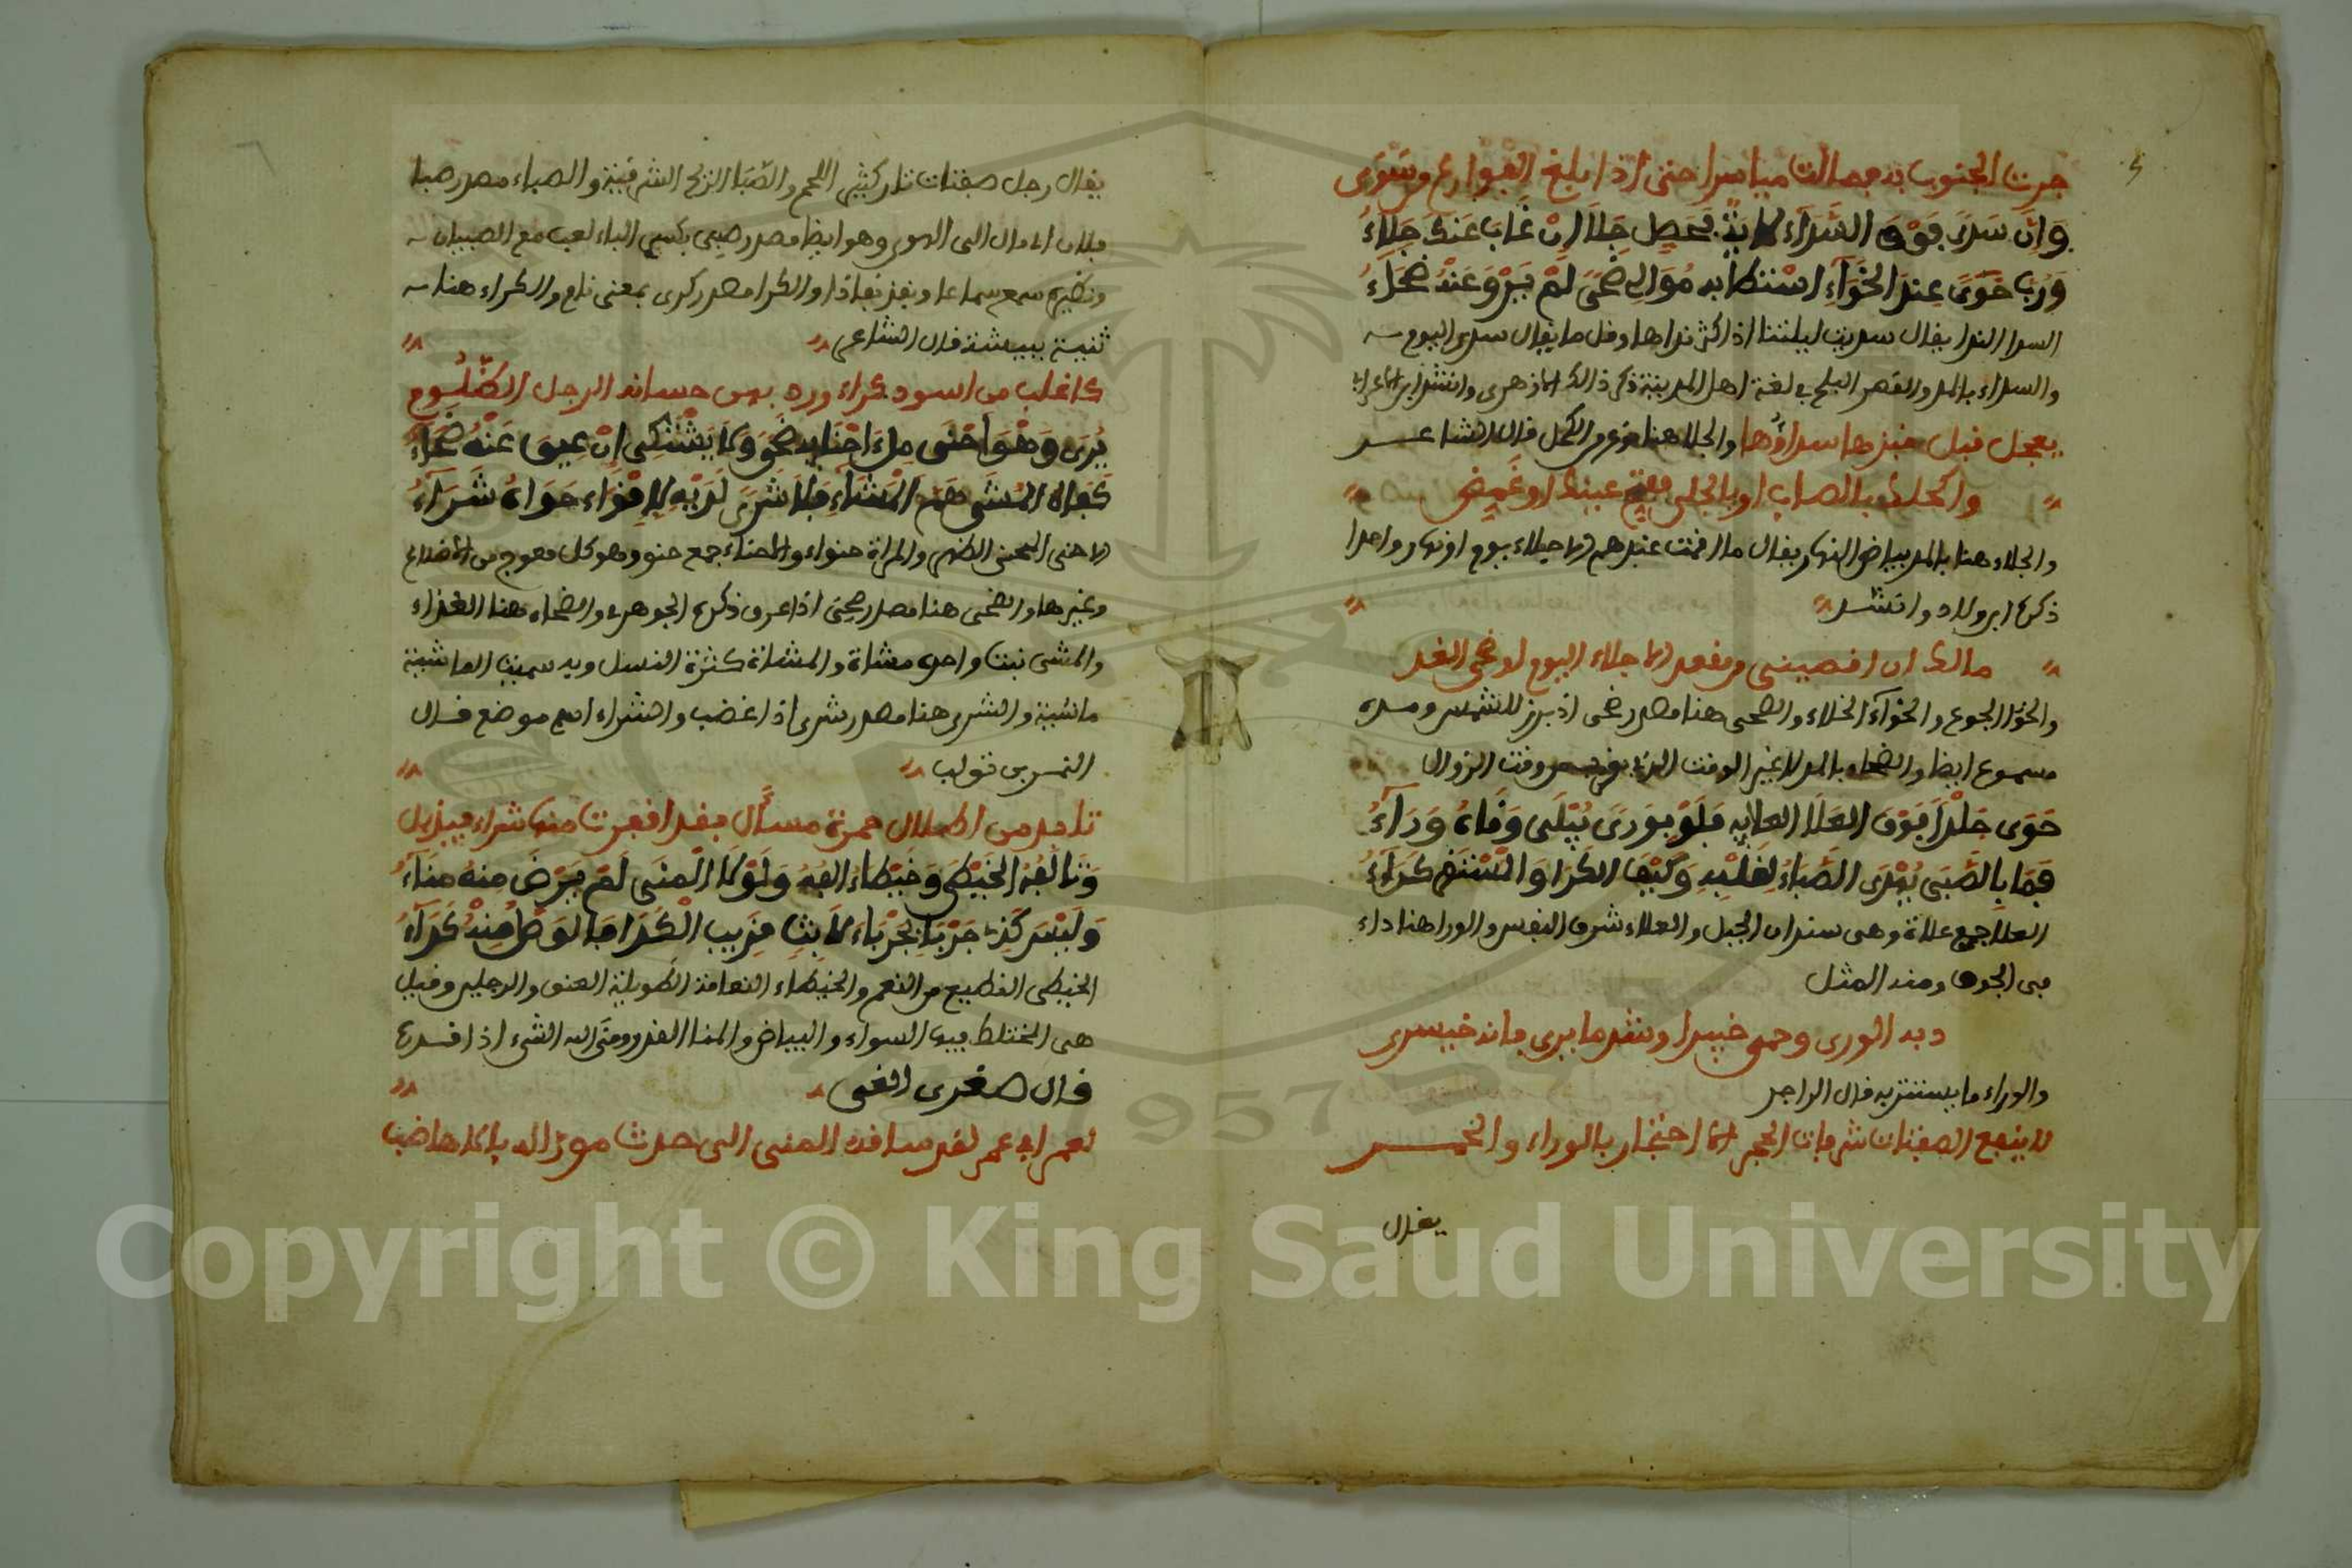 جرت الجنوب به فصالت مياسرا حتى اذا بلغ الفوارع من سوى
وان سدى فوق السداء لابنة فحصل جلا ان غاب عنك جلاء
ورب خوى عند الخواء استطابه موالى ضحى لم يرو عند ضحاء
السدا الندا يقال سديت ليلتنا اذا كثر نداها وقل ما يقال سدى اليوم
والسداء بالمد والقصر البلح في لغة اهل المدينة ذكر ذلك الازهرى وانشد ابن الاعرابي
يعجل قبل خبزها سداؤها والجلا هنا نوع من الكحل قال الشاعر
واكحلك بالصاب او بالجلى ففتح عينك او غمض
والجلاء هنا بالمد بياض النهار يقال ما اقمت عندهم الا جلاء يوم اى نهار واحدا
ذكره ابن ولاد وانشد
مالى ان اقصيتنى من مقعد الا جلاء اليوم او ضحى الغد
والخوا الجوع والخواء الخلاء والضحى هنا مصدر ضحى اذ برز للشمس ومده
مسموع ايضا والضحاء بالمد لا غير الوقت الذى وقت الزوال
حوى جلدا فوق العلا العلايه فلو بورى يبلى وفاه وراء
فما بالصبى يهدى الصباء لقلبه وكيف الكرا والمستنض كراء
العلا جمع علاة وهى سندان الجبل والعلاء شرف النفس والورا هنا داء
فى الجوف ومنه المثل
به الورى وحمى خيبرا وشر ما يرى فانه خيسرى
والوراء ما يستتر به قال الراجز
لا ينفع الصفتات شرفات الحجر الا احتجار بالوراء والخمر
يقال
يقال رجل صفتات تار كثير اللحم والصبا الريح الشرقية والصباء مصدر صبا
فلان اذا مال الى الهوى وهو ايضا مصدر صبى بكسر الباء لعب مع الصبيان
ونظيره سمع سماعا ونفذ نفاذا والكرا مصدر كرى بمعنى نام والكراء هنا
ثنية ببيشة قال الشاعر
كاغلب من اسود كراء ورد يرد حسانه الرجل الظلوم
يرى وهو احنى ملء احنايه ضحى ولا يشتكى ان عيق عنه ضحاء
كفاه المشى هم المشاء فلا شرى لديه لا قواء حواه شراء
الاحنى المحنى الظهر والمراة حنواء والاحناء جمع حنو وهو كل معوج من الاضلاع
وغيرها والضحى هنا مصدر ضحى اذا عرق ذكره الجوهرى والضحاء هنا الغذاء
والمشى نبت واحده مشاة والمشاء كثرة النسل وبه سميت الماشية
ماشية والشرى هنا مصدر شرى اذا غضب والشراء اسم موضع قال
النمر بن تولب
تابد من اطلال جمرة مسأل فقد اقفرت منها شراء فيذبل
وتالفه الخيطى وخيطاء الفه ولولا المنى لم يرض منه مناء
وليس كذى جربا بجرباء لابث قريب الكدا ما لو ضل منه كداء
الخيطى القطيع من النعم والخيطاء النعامة الطويلة العنق والرجلين وقيل
هى المختلط فيها السواد والبياض والمنا القدر ومنى الله الشىء اذا قدره
قال صخر الغى
لعمر ابى عمر لقد ساقه المنى الى جدث موزى له بالاهاضب